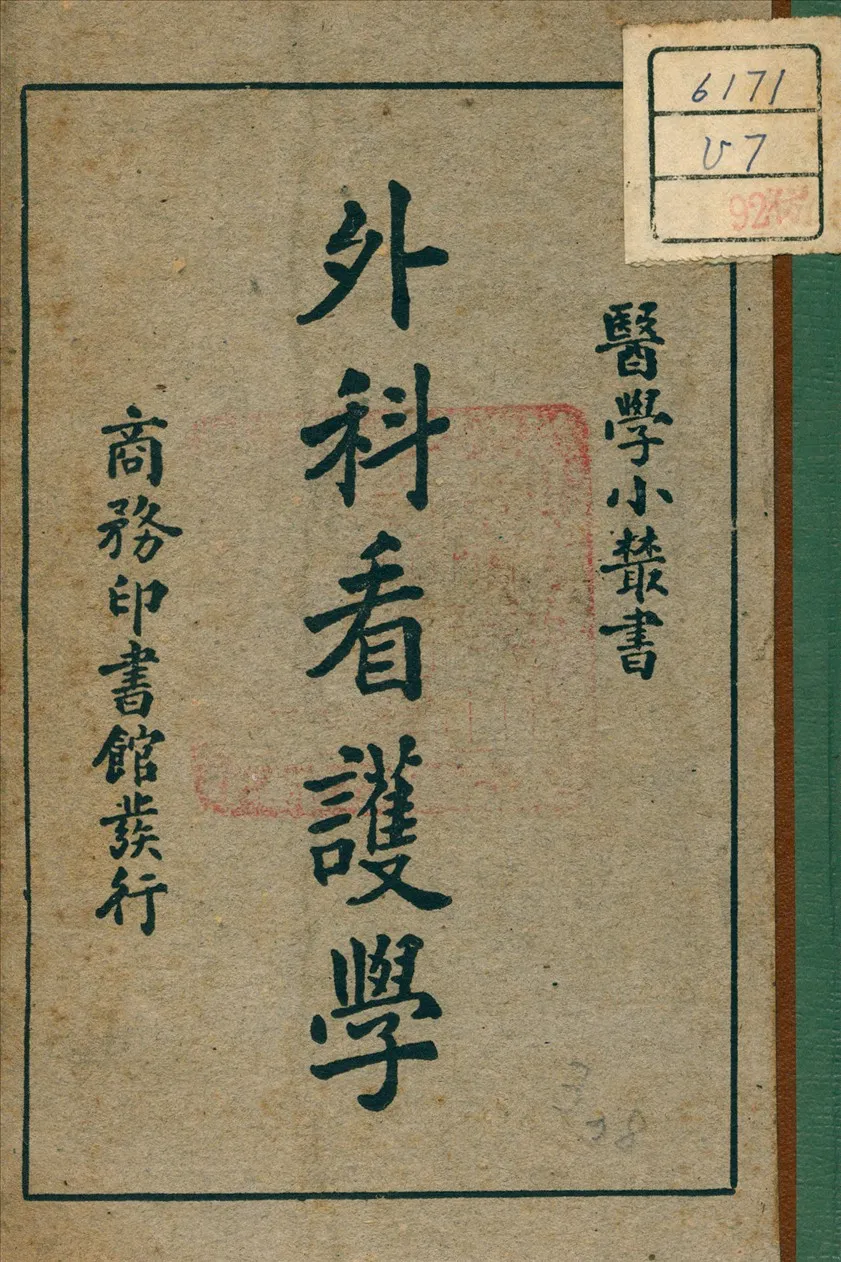 醫學小叢書
外科看護學
商務印書館發行
6171
U7